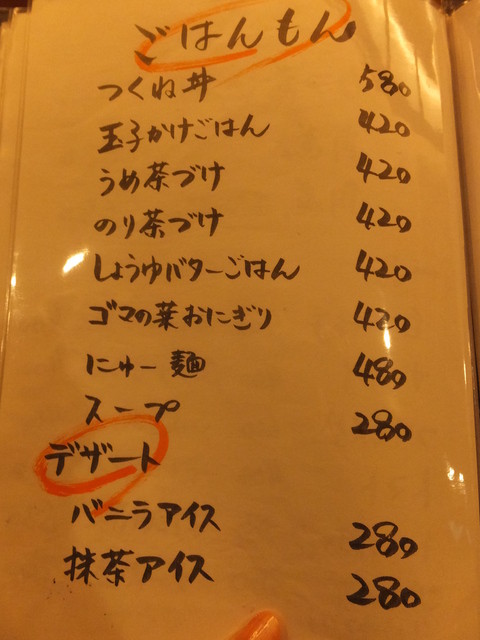 ごはんもん
つくね丼 580
玉子かけごはん 420
うめ茶づけ 420
のり茶づけ 420
しょうゆバターごはん 420
ゴマの葉おにぎり 420
にゅー麺 480
スープ 280
デザート
バニラアイス 280
抹茶アイス 280